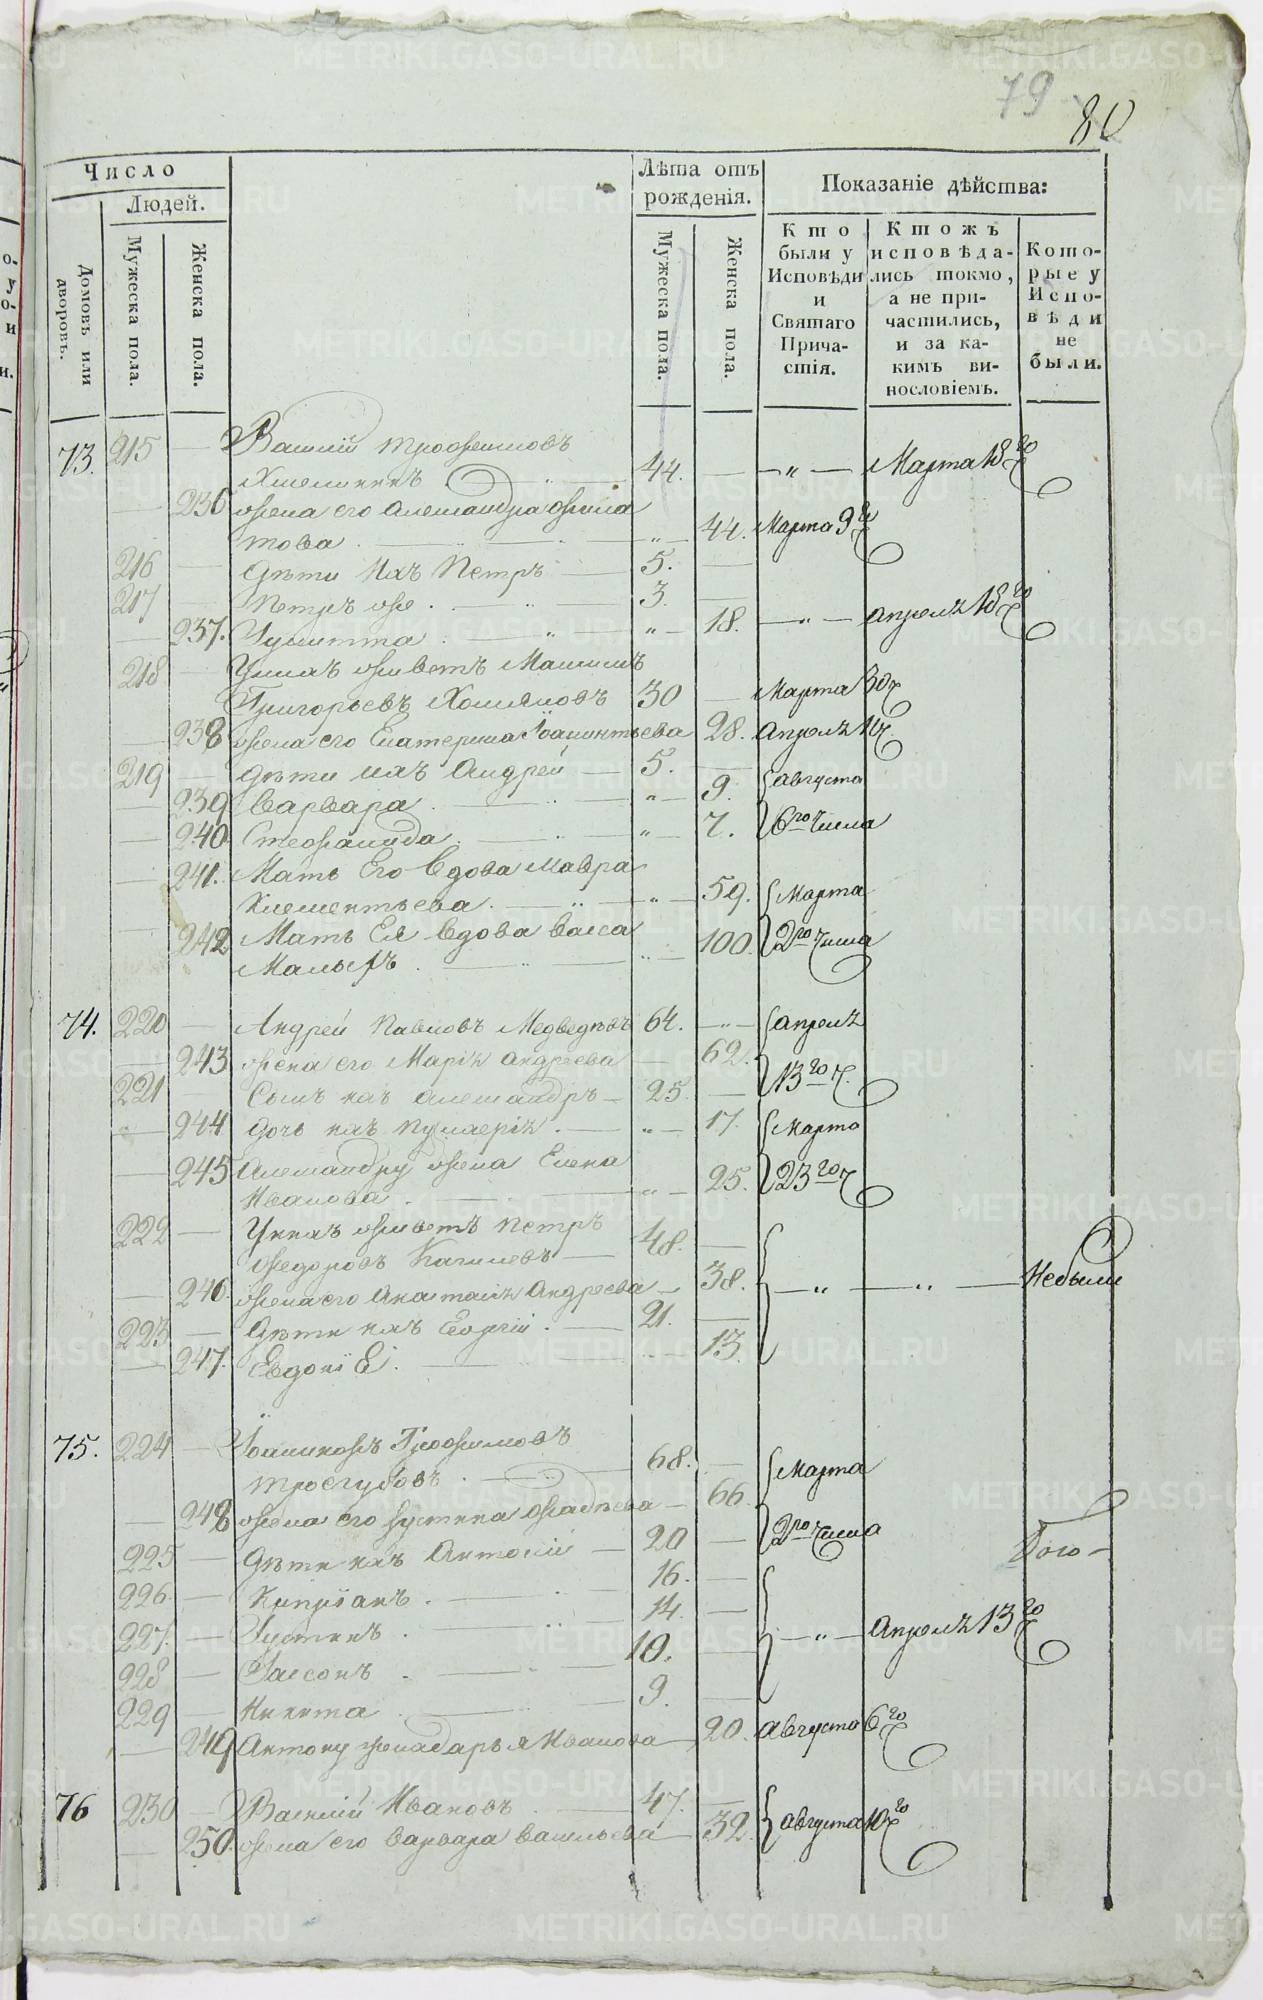 79
80
Число
Людей.
Домовъ или дворовъ.
Мужеска пола.
Женска пола.
Лѣта отъ рожденія.
Мужеска пола.
Женска пола.
Показаніе дѣйства:
Кто были у Исповѣди и Святаго Причастія.
Ктожъ исповѣдались токмо, а не причастились, и за какимъ винословіемъ.
Которые у Исповѣди не были.
73. 215 Василій Трофимовъ
44. Марта 18го
236 жена его Александра
това 44. Марта 9го
216 Дѣти ихъ Петръ 5.
217 Петръ же 3.
237. Улитта 18. Апреля 18го
218 У нихъ живетъ Максимъ
Григорьевъ Хомяковъ 30 Марта 30 ч
238 жена его Екатерина 28. Апреля 10 ч
219 Дѣти ихъ Андрей 5.
239 Варвара 9. Августа
240 Стефанида 7. 6го числа
241. Мать Его вдова Мавра
Клементьева 59. Марта
242 Мать Ея вдова Васса 100. 2го числа
74. 220 Андрей Павловъ Медведевъ 64. Апреля
243 жена его Марія Андреева 62. 13го ч.
221 Сынъ ихъ Александръ 25.
244 Дочь ихъ Пулхерія 17. Марта
245 Александру жена Елена
Иванова 25. 23го ч
222 У нихъ живетъ Петръ
Федоровъ 48.
246. жена его Анастасія Андреева 38. Небыли
223 Дѣти ихъ Георгій 21.
247. Евдокія 13.
75. 224 Трофимовъ
Трегубовъ 68. Марта
248 жена его Устина 66. 2го числа
225 Дѣти ихъ Антоній 20
226 Кипріанъ 16.
227. Устинъ 14. Апреля 13го
228 Іассонъ 10.
229 Никита 9.
249 Антону жена Дарья Иванова 20. Августа 6го
76 230 Василій Ивановъ 47.
250. жена его Варвара Васильева 32. Августа 10го
Бого-
METRIKI.GASO-URAL.RU